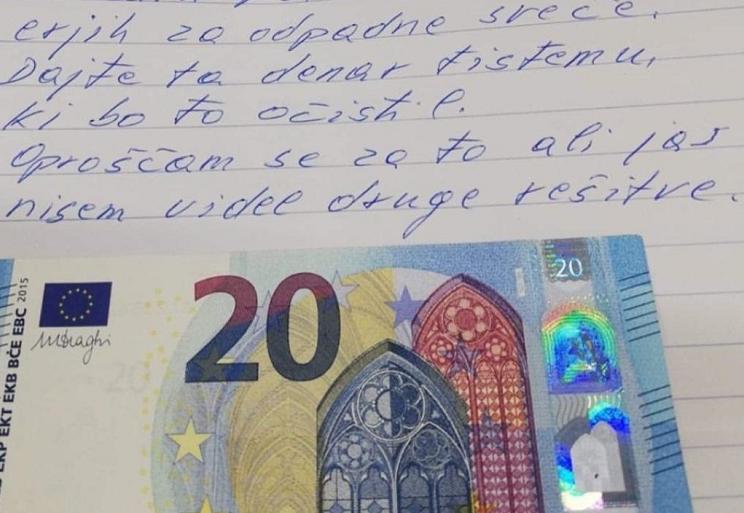 erjih za odpadne sreče.
Dajte ta denar tistemu,
ki bo to očistil.
Oproščam se za to ali jas
nisem videl druge rešitve.
20
20
EKP EKT EKB BČE EBC 2015
MDraghi